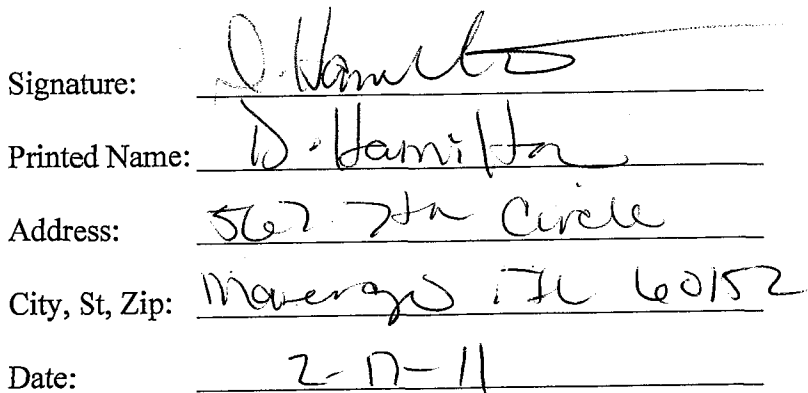 Signature: D. Hamilton
Printed Name: D. Hamilton
Address: 567 7th Circle
City, St, Zip: Marengo IL 60152
Date: 2-17-11